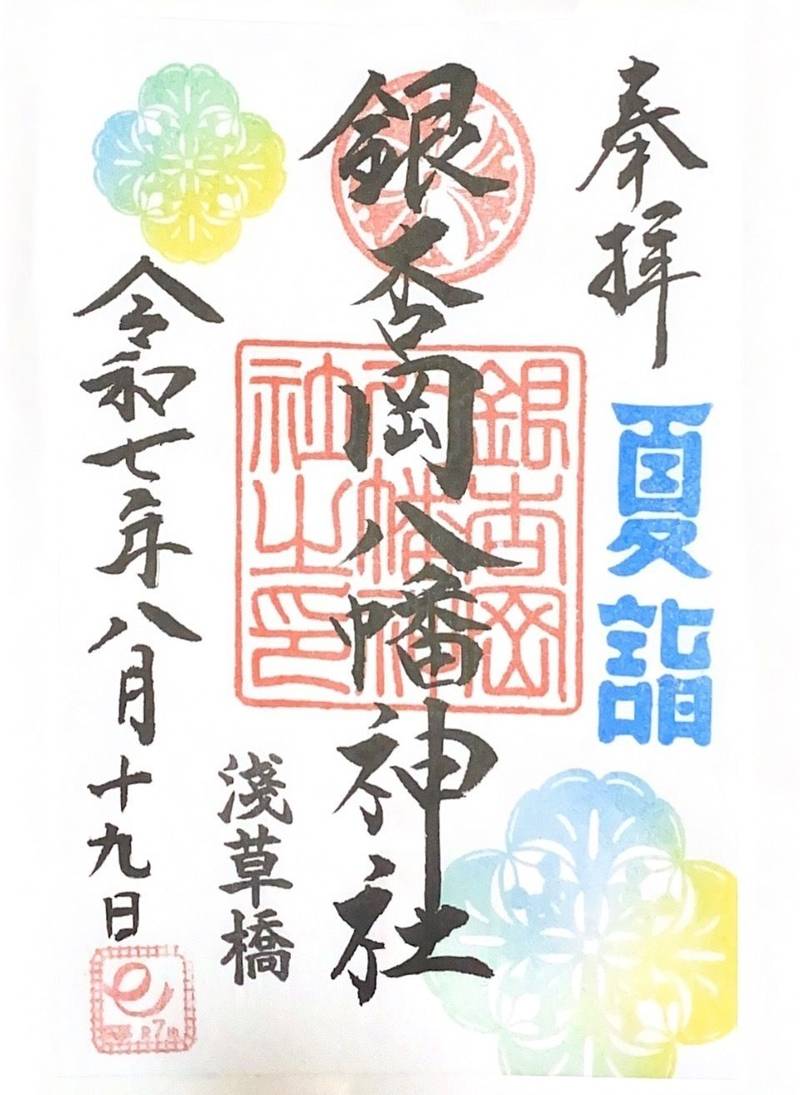 奉拝
夏詣
銀杏岡八幡神社
銀杏岡
八幡神
社之印
浅草橋
令和七年八月十九日